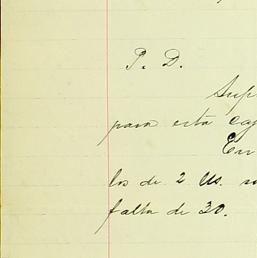 P. D.
Sup
para esta cap
En
los de 2 Us. so
falta de 30.